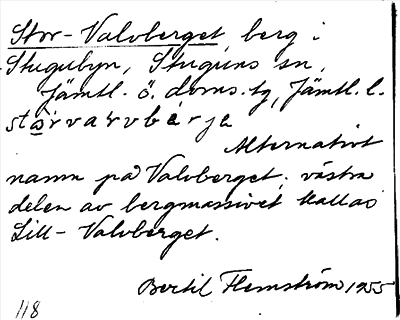 Stor-Valvberget, berg i
Stugubyn, Stuguns sn,
Jämtl. ö. doms.tg, Jämtl. l.
Alternativt
namn på Valvberget; västra
delen av bergmassivet kallas
Lill-Valvberget.
Bertil Flemström 1955
118